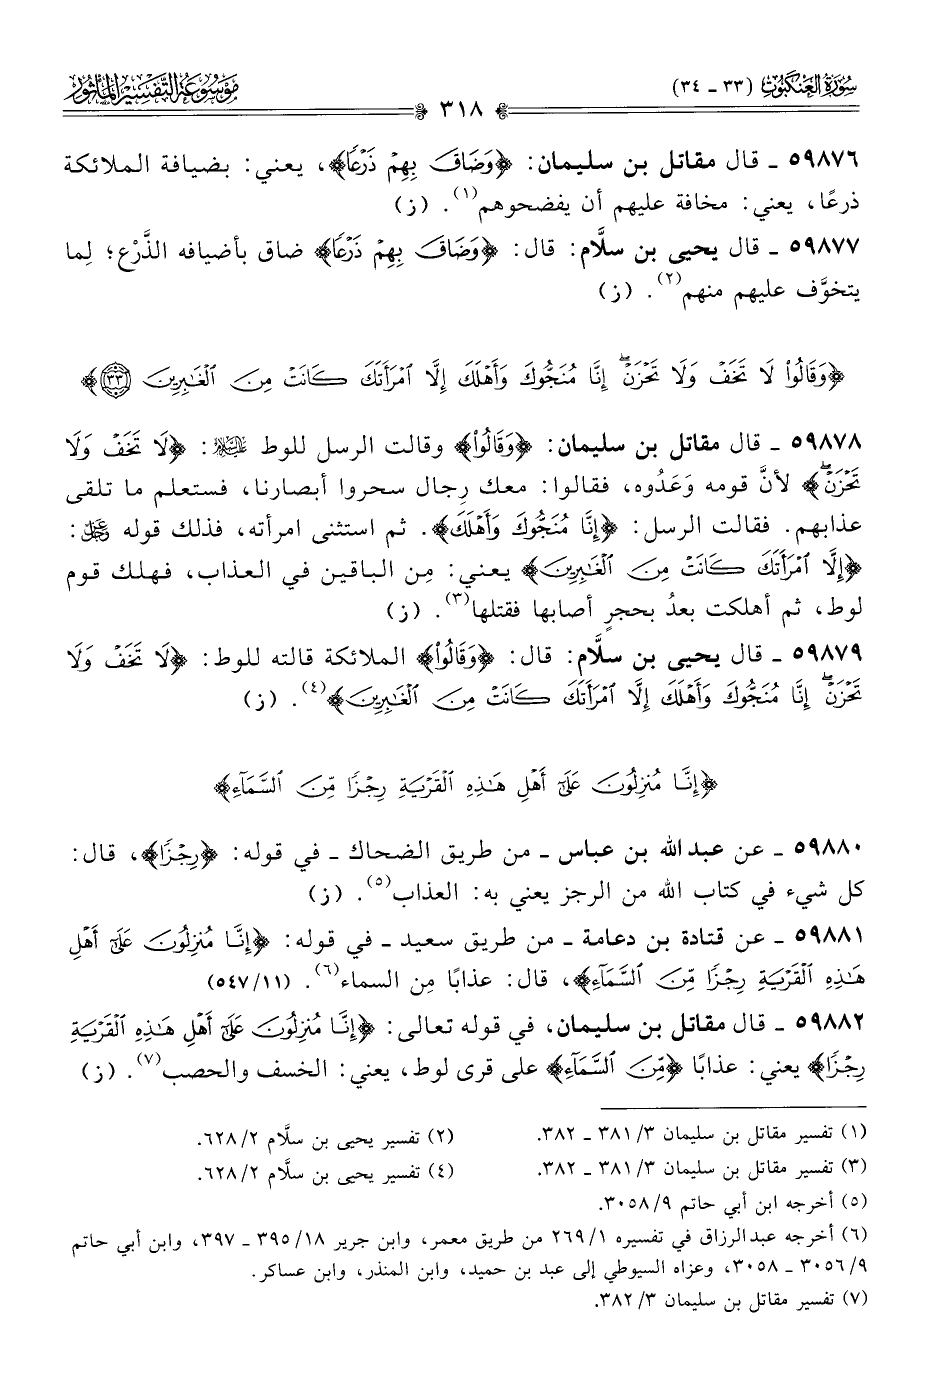 سُورَةُ العَنكَبُوتِ (٣٣ - ٣٤)
مَوْسُوعَةُ التَّفْسِيرِ المَأْثُورِ
٣١٨
٥٩٨٧٦ ـ قال مقاتل بن سليمان: ﴿وَضَاقَ بِهِمْ ذَرْعًا﴾، يعني: بضيافة الملائكة
ذرعًا، يعني: مخافة عليهم أن يفضحوهم(١). (ز)
٥٩٨٧٧ ـ قال يحيى بن سلَّام: قال: ﴿وَضَاقَ بِهِمْ ذَرْعًا﴾ ضاق بأضيافه الذَّرْع؛ لِما
يتخوَّف عليهم منهم(٢). (ز)
﴿وَقَالُوا۟ لَا تَخَفْ وَلَا تَحْزَنْ ۖ إِنَّا مُنَجُّوكَ وَأَهْلَكَ إِلَّا ٱمْرَأَتَكَ كَانَتْ مِنَ ٱلْغَـٰبِرِينَ ٣٣﴾
٥٩٨٧٨ ـ قال مقاتل بن سليمان: ﴿وَقَالُوا۟﴾ وقالت الرسل للوط عليه السلام: ﴿لَا تَخَفْ وَلَا
تَحْزَنْ ۖ﴾ لأنَّ قومه وَعَدُوه، فقالوا: معك رجال سحروا أبصارنا، فستعلم ما تلقى
عذابهم. فقالت الرسل: ﴿إِنَّا مُنَجُّوكَ وَأَهْلَكَ﴾. ثم استثنى امرأته، فذلك قوله عز وجل:
﴿إِلَّا ٱمْرَأَتَكَ كَانَتْ مِنَ ٱلْغَـٰبِرِينَ﴾ يعني: مِن الباقين في العذاب، فهلك قوم
لوط، ثم أهلكت بعدُ بحجرٍ أصابها فقتلها(٣). (ز)
٥٩٨٧٩ ـ قال يحيى بن سلَّام: قال: ﴿وَقَالُوا۟﴾ الملائكة قالته للوط: ﴿لَا تَخَفْ وَلَا
تَحْزَنْ ۖ إِنَّا مُنَجُّوكَ وَأَهْلَكَ إِلَّا ٱمْرَأَتَكَ كَانَتْ مِنَ ٱلْغَـٰبِرِينَ﴾(٤). (ز)
﴿إِنَّا مُنزِلُونَ عَلَىٰٓ أَهْلِ هَـٰذِهِ ٱلْقَرْيَةِ رِجْزًا مِّنَ ٱلسَّمَآءِ﴾
٥٩٨٨٠ ـ عن عبد الله بن عباس ـ من طريق الضحاك ـ في قوله: ﴿رِجْزًا﴾، قال:
كل شيء في كتاب الله من الرجز يعني به: العذاب(٥). (ز)
٥٩٨٨١ ـ عن قتادة بن دعامة ـ من طريق سعيد ـ في قوله: ﴿إِنَّا مُنزِلُونَ عَلَىٰٓ أَهْلِ
هَـٰذِهِ ٱلْقَرْيَةِ رِجْزًا مِّنَ ٱلسَّمَآءِ﴾، قال: عذابًا مِن السماء(٦). (٥٤٧/١١)
٥٩٨٨٢ ـ قال مقاتل بن سليمان، في قوله تعالى: ﴿إِنَّا مُنزِلُونَ عَلَىٰٓ أَهْلِ هَـٰذِهِ ٱلْقَرْيَةِ
رِجْزًا﴾ يعني: عذابًا ﴿مِّنَ ٱلسَّمَآءِ﴾ على قرى لوط، يعني: الخسف والحصب(٧). (ز)
(١) تفسير مقاتل بن سليمان ٣/ ٣٨١ ـ ٣٨٢. (٢) تفسير يحيى بن سلَّام ٢/ ٦٢٨.
(٣) تفسير مقاتل بن سليمان ٣/ ٣٨١ ـ ٣٨٢. (٤) تفسير يحيى بن سلَّام ٢/ ٦٢٨.
(٥) أخرجه ابن أبي حاتم ٩/ ٣٠٥٨.
(٦) أخرجه عبدالرزاق في تفسيره ١/ ٢٦٩ من طريق معمر، وابن جرير ١٨/ ٣٩٥ ـ ٣٩٧، وابن أبي حاتم
٩/ ٣٠٥٦ ـ ٣٠٥٨، وعزاه السيوطي إلى عبد بن حميد، وابن المنذر، وابن عساكر.
(٧) تفسير مقاتل بن سليمان ٣/ ٣٨٢.